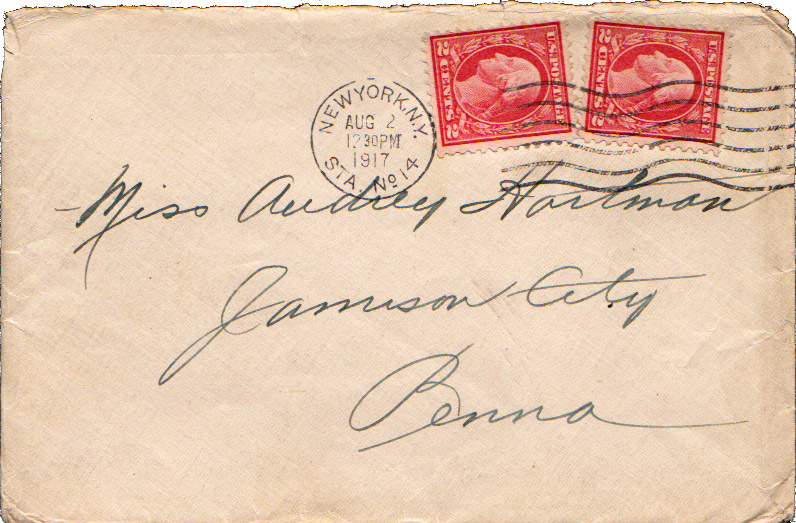 U.S. POSTAGE
2 CENTS 2
U.S. POSTAGE
2 CENTS 2
NEW YORK, N.Y.
AUG 2
12 30 PM
1917
STA. No 14
Miss Audrey Hartman
Jamison City
Penna